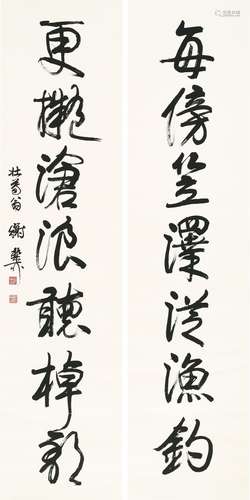 每傍笠澤從漁釣
更擬滄浪聽棹歌
壯暮翁 謝稚